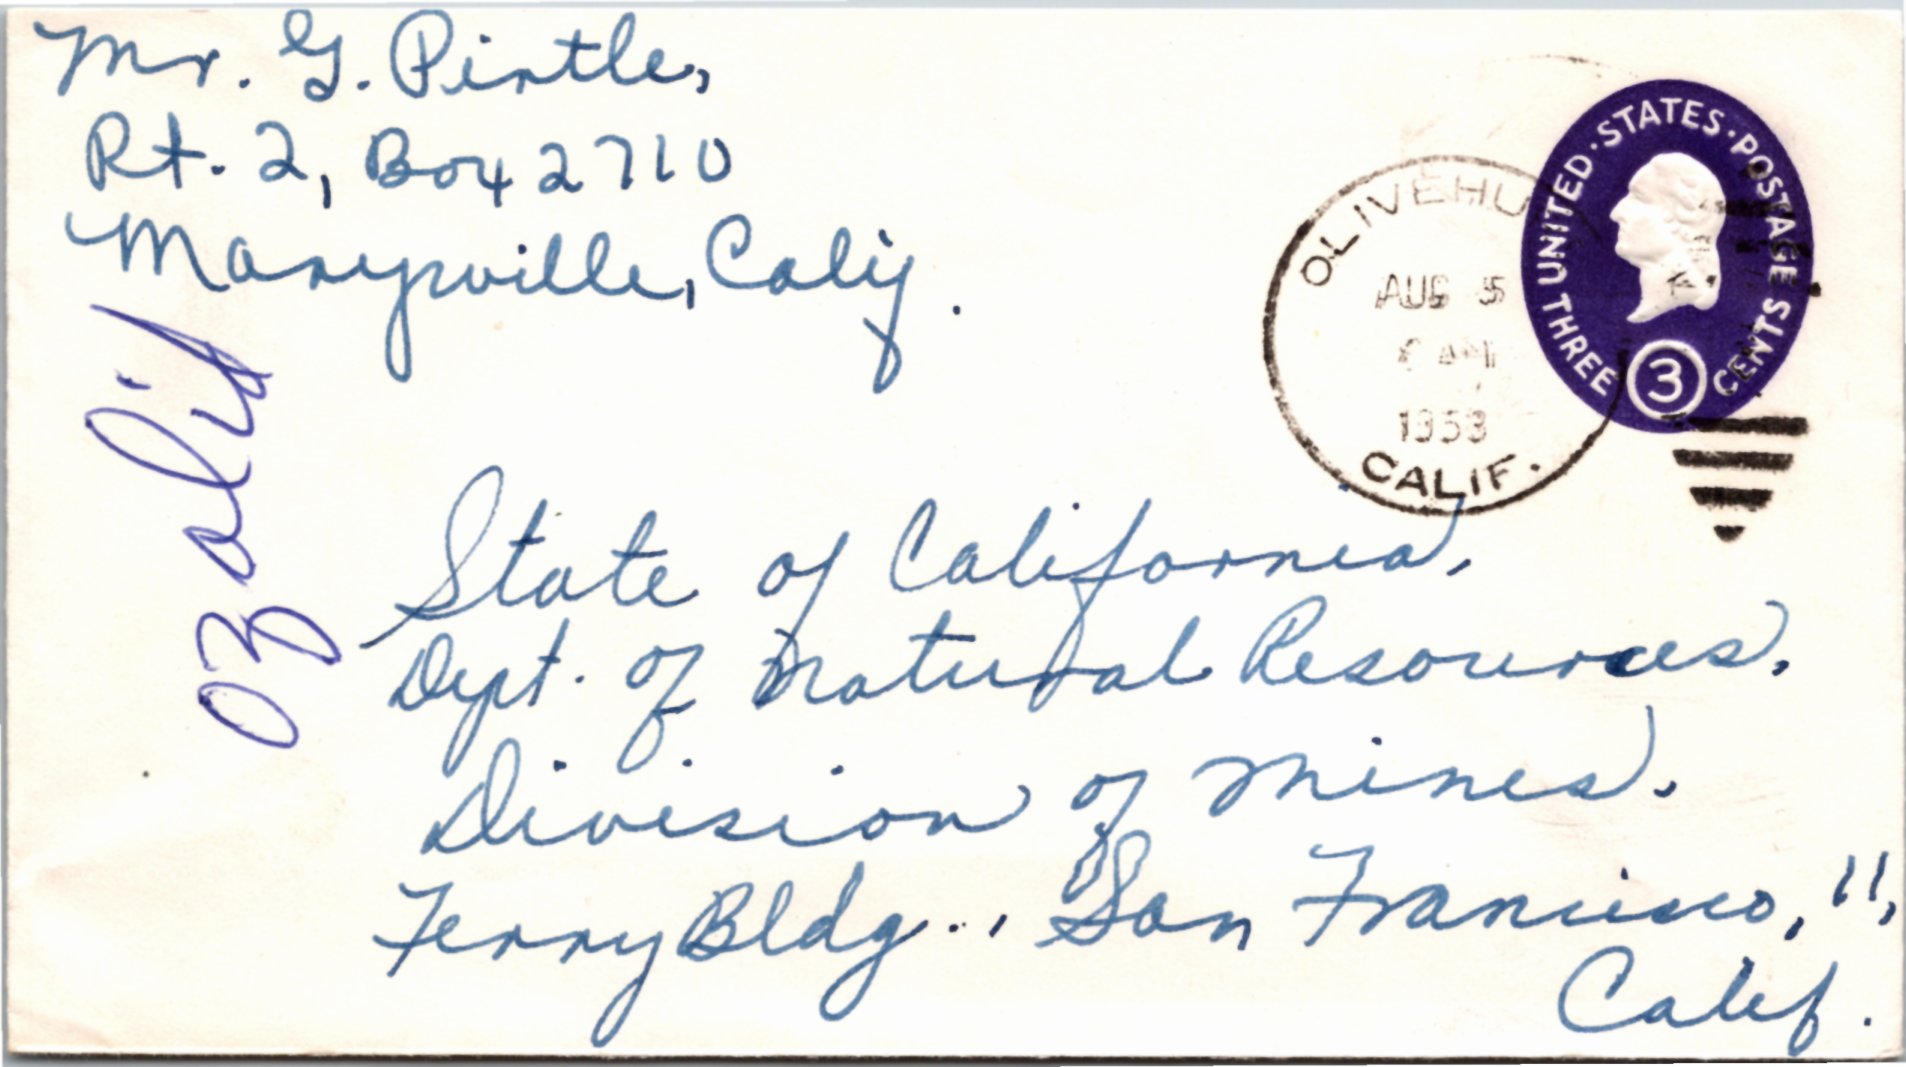 Mr. G. Pirtle,
Rt. 2, Box 2710
Marysville, Calif.
Ozalid
UNITED · STATES · POSTAGE
THREE 3 CENTS
OLIVEHU
AUG 5
AM
1953
CALIF.
State of California,
Dept. of Natural Resources,
Division of Mines,
Ferry Bldg., San Francisco, 11,
Calif.